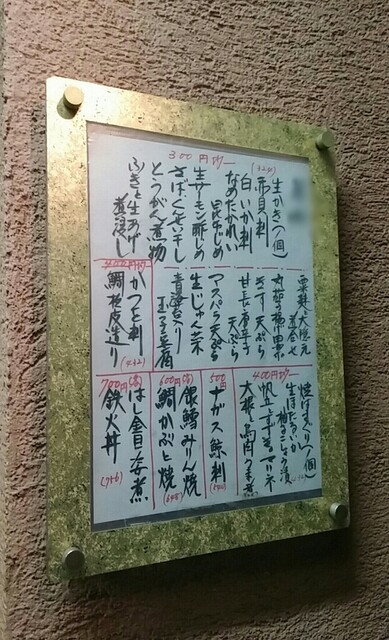 300円均一
(324)
生かき(一個)
赤貝刺
白いか刺
なめたかれい
昆布じめ
生サーモン酢じめ
さばくんせい干し
とうがん煮物
ふきと生あげ
煮浸し
きす天ぷら
甘長唐辛子
天ぷら
アスパラ天ぷら
生じゅん菜
青海苔入り
玉子豆腐
400円均一
(432)
かつを刺
鯛松皮造り
400円均一
焼はまぐり(一個)
生ほたるいか
柚子こしょう漬
大根と鳥肉うま煮
500円
ナガス鯨刺
(540)
600円(各)
銀鱈みりん焼
鯛かぶと焼
(648)
700円(各)
はし金目の安煮
鉄火丼
(756)